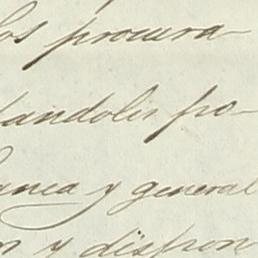 los procura-
dandoles po-
anca y general
n y dispon